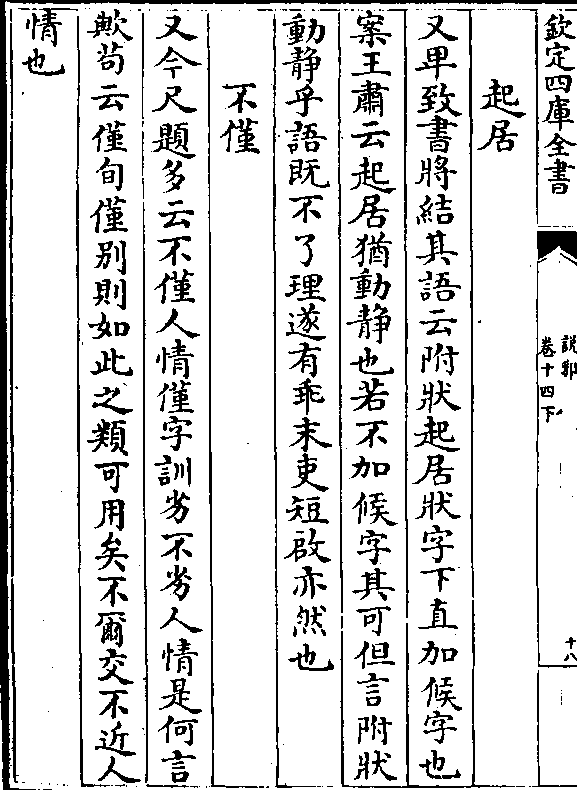 欽定四庫全書
説郛
卷十四下
十八
起居
又卑致書將結其語云附狀起居狀字下直加候字也
案王肅云起居猶動静也若不加候字其可但言附狀
動静乎語既不了理遂有乖末吏短啟亦然也
不僅
又今尺題多云不僅人情僅字訓劣不劣人情是何言
歟苟云僅旬僅别則如此之類可用矣不爾交不近人
情也